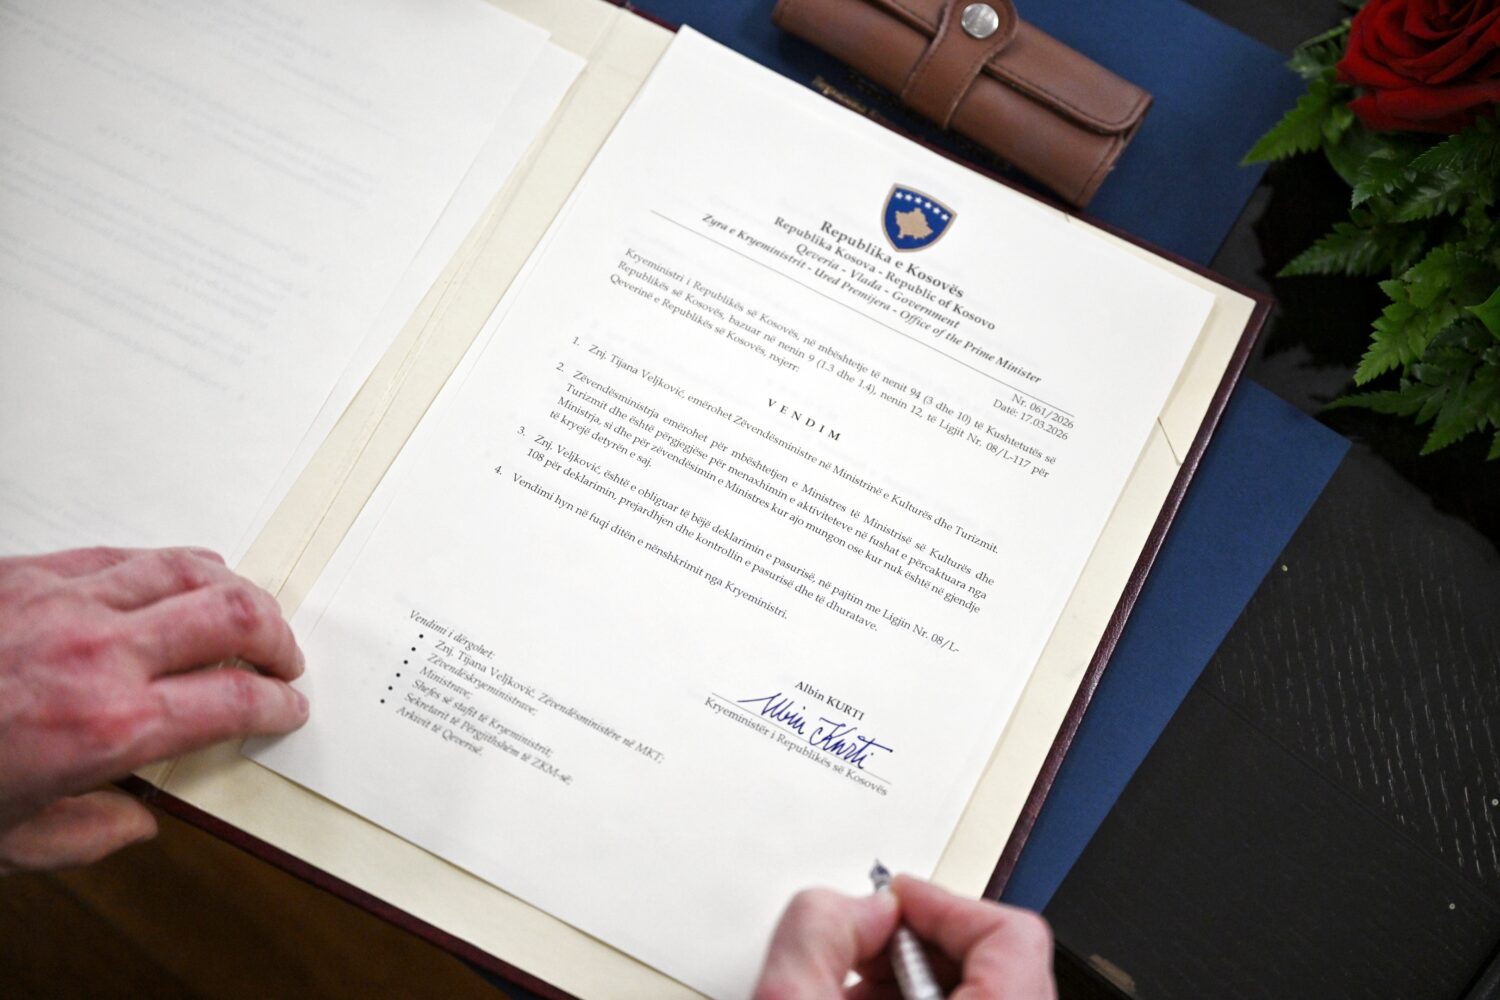 Republika e Kosovës
Republika Kosova - Republic of Kosovo
Qeveria - Vlada - Government
Zyra e Kryeministrit - Ured Premijera - Office of the Prime Minister
Nr. 061/2026
Datë: 17.03.2026
Kryeministri i Republikës së Kosovës, në mbështetje të nenit 94 (3 dhe 10) të Kushtetutës së
Republikës së Kosovës, bazuar në nenin 9 (1.3 dhe 1.4), nenin 12, të Ligjit Nr. 08/L-117 për
Qeverinë e Republikës së Kosovës, nxjerr:
VENDIM
1. Znj. Tijana Veljković, emërohet Zëvendësministre në Ministrinë e Kulturës dhe Turizmit.
2. Zëvendësministrja emërohet për mbështetjen e Ministres të Ministrisë së Kulturës dhe
Turizmit dhe është përgjegjëse për menaxhimin e aktiviteteve në fushat e përcaktuara nga
Ministrja, si dhe për zëvendësimin e Ministres kur ajo mungon ose kur nuk është në gjendje
të kryejë detyrën e saj.
3. Znj. Veljković, është e obliguar të bëjë deklarimin e pasurisë, në pajtim me Ligjin Nr. 08/L-
108 për deklarimin, prejardhjen dhe kontrollin e pasurisë dhe të dhuratave.
4. Vendimi hyn në fuqi ditën e nënshkrimit nga Kryeministri.
Albin KURTI
Albin Kurti
Kryeministër i Republikës së Kosovës
Vendimi i dërgohet:
• Znj. Tijana Veljković, Zëvendësministëre në MKT;
• Zëvendëskryeministrave;
• Ministrave;
• Shefes së stafit të Kryeministrit;
• Sekretarit të Përgjithshëm të ZKM-së;
• Arkivit të Qeverisë.